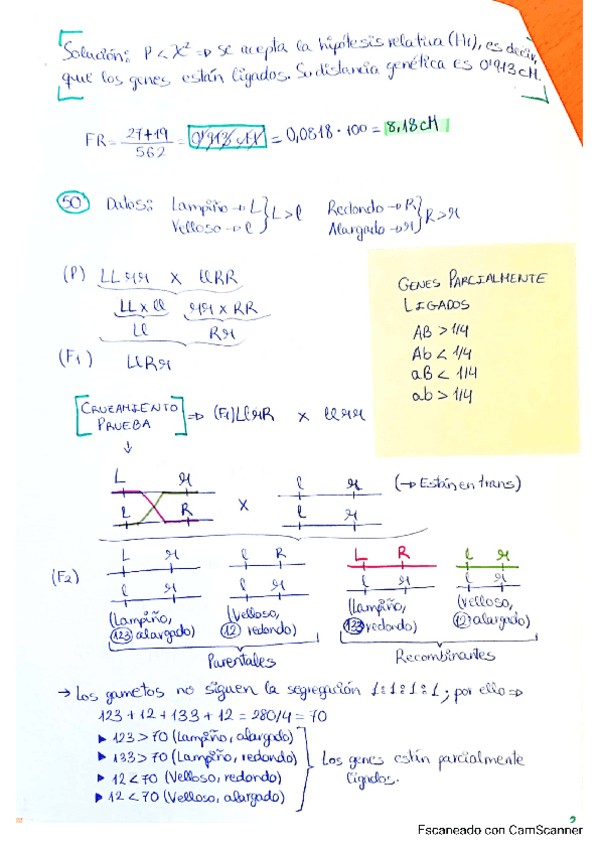 Solución: P < X² => se acepta la hipótesis relativa (H1), es decir,
que los genes están ligados. Su distancia genética es 0'913 cM.
FR = 27+19 / 562 = = 0,0818 · 100 = 8,18 cM
50 Datos: Lampiño → L } L > l Redondo → R } R > r
Velloso → l Alargado → r
(P) LL rr x ll RR
LL x ll rr x RR
Ll Rr
(F1) LlRr
GENES PARCIALMENTE
LIGADOS
AB > 1/4
Ab < 1/4
aB < 1/4
ab > 1/4
CRUZAMIENTO
PRUEBA => (F1) LlrR x ll rr
↓
L r l r (→ Están en trans)
l R x l r
(F2) L r l R L R l r
l r l r l r l r
(Lampiño, (Velloso, (Lampiño, (Velloso,
123 alargado) 12 redondo) 133 redondo) 12 alargado)
Parentales Recombinantes
→ Los gametos no siguen la segregación 1:1:1:1; por ello =>
123 + 12 + 133 + 12 = 280/4 = 70
▶ 123 > 70 (Lampiño, alargado)
▶ 133 > 70 (Lampiño, redondo)
▶ 12 < 70 (Velloso, redondo)
▶ 12 < 70 (Velloso, alargado)
Los genes están parcialmente
ligados.
2
Escaneado con CamScanner